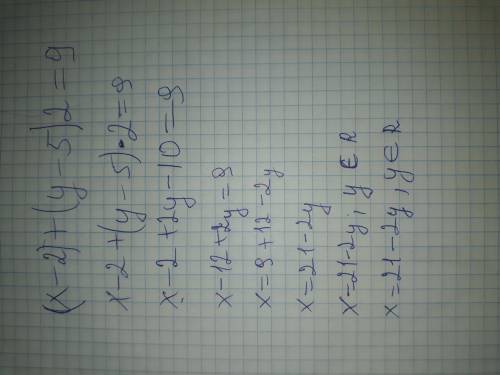 (x-2)+(y-5)2=9
x-2+(y-5)·2=9
x-2+2y-10=9
x-12+2y=9
x=9+12-2y
x=21-2y
x=21-2y, y∈R
x=21-2y, y∈R